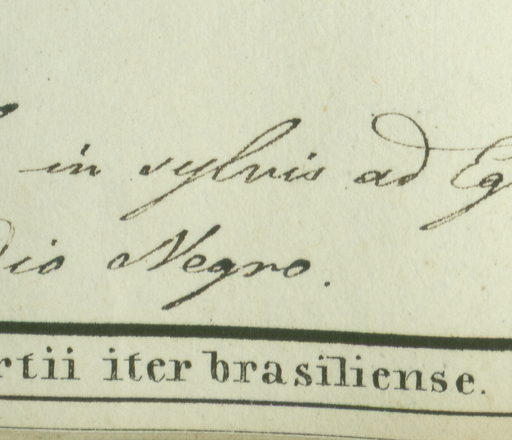 in sylvis ad Eg
io Negro.
rtii iter brasiliense.